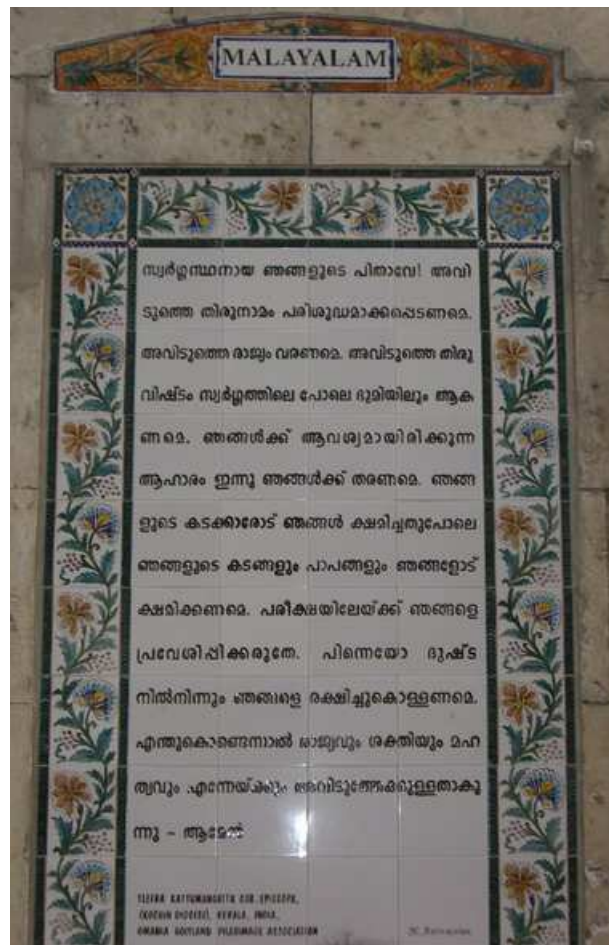 MALAYALAM
സ്വർഗ്ഗസ്ഥനായ ഞങ്ങളുടെ പിതാവേ! അവി
ടുത്തെ തിരുനാമം പരിശുദ്ധമാക്കപ്പെടണമെ.
അവിടുത്തെ രാജ്യം വരണമെ. അവിടുത്തെ തിരു
വിഷ്ടം സ്വർഗ്ഗത്തിലെ പോലെ ഭൂമിയിലും ആക
ണമെ. ഞങ്ങൾക്ക് ആവശ്യമായിരിക്കുന്ന
ആഹാരം ഇന്നു ഞങ്ങൾക്ക് തരണമെ. ഞങ്ങ
ളുടെ കടക്കാരോട് ഞങ്ങൾ ക്ഷമിച്ചതുപോലെ
ഞങ്ങളുടെ കടങ്ങളും പാപങ്ങളും ഞങ്ങളോട്
ക്ഷമിക്കണമെ. പരീക്ഷയിലേയ്ക്ക് ഞങ്ങളെ
പ്രവേശിപ്പിക്കരുതേ. പിന്നെയോ ദുഷ്ട
നിൽനിന്നും ഞങ്ങളെ രക്ഷിച്ചുകൊള്ളണമെ.
എന്തുകൊണ്ടെന്നാൽ രാജ്യവും ശക്തിയും മഹ
ത്വവും എന്നേയ്ക്കും അവിടുത്തേക്കുള്ളതാകു
ന്നു – ആമേൻ
KATTUMANGATTU COR EPISCOPA,
(KOCHIN DIOCESE), KERALA, INDIA,
OMANIA HOLYLAND PILGRIMAGE ASSOCIATION